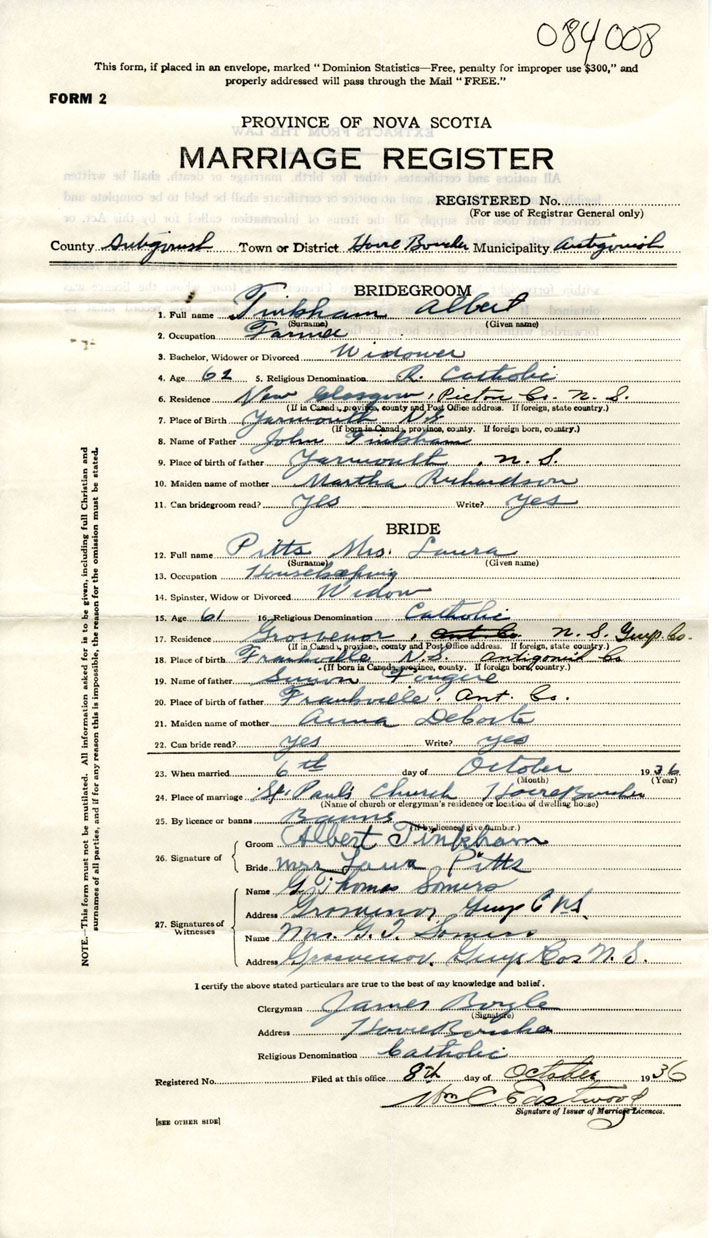 084008
This form, if placed in an envelope, marked "Dominion Statistics—Free, penalty for improper use $300," and
properly addressed will pass through the Mail "FREE."
FORM 2
PROVINCE OF NOVA SCOTIA
MARRIAGE REGISTER
REGISTERED No.
(For use of Registrar General only)
County Antigonish Town or District Havre Boucher Municipality Antigonish
BRIDEGROOM
1. Full name Tinkham Albert
(Surname) (Given name)
2. Occupation Farmer
3. Bachelor, Widower or Divorced Widower
4. Age 62 5. Religious Denomination R. Catholic
6. Residence New Glasgow, Pictou Co. N. S.
(If in Canada, province, county and Post Office address. If foreign, state country.)
7. Place of Birth Yarmouth N.S.
(If born in Canada, province, county. If foreign born, country.)
8. Name of Father John Tinkham
9. Place of birth of father Yarmouth, N. S.
10. Maiden name of mother Martha Richardson
11. Can bridegroom read? Yes Write? Yes
BRIDE
12. Full name Pitts Mrs. Laura
(Surname) (Given name)
13. Occupation Housekeeping
14. Spinster, Widow or Divorced Widow
15. Age 61 16. Religious Denomination Catholic
17. Residence Grosvenor, Ant Co. N. S. Guys Co.
(If in Canada, province, county and Post Office address. If foreign, state country.)
18. Place of birth Frankville N.S. Antigonish Co
(If born in Canada, province, county. If foreign born, country.)
19. Name of father Simon Fougere
20. Place of birth of father Frankville, Ant. Co.
21. Maiden name of mother Anna DeCoste
22. Can bride read? Yes Write? Yes
23. When married 6th day of October 1936
(Month) (Year)
24. Place of marriage St. Paul's Church Havre Boucher
(Name of church or clergyman's residence or location of dwelling house)
25. By licence or banns Banns
(If by licence, give number.)
26. Signature of
Groom Albert Tinkham
Bride Mrs Laura Pitts
27. Signatures of Witnesses
Name G Thomas Somers
Address Grosvenor Guys C N.S.
Name Mrs. G. T. Somers
Address Grosvenor, Guys Co N. S.
NOTE.—This form must not be mutilated. All information asked for is to be given, including full Christian and
surnames of all parties, and if for any reason this is impossible, the reason for the omission must be stated.
I certify the above stated particulars are true to the best of my knowledge and belief.
Clergyman James Boyle
(Signature)
Address Havre Boucher
Religious Denomination Catholic
Registered No. Filed at this office 8th day of October 1936
Wm C Eastwood
Signature of Issuer of Marriage Licences.
[SEE OTHER SIDE]